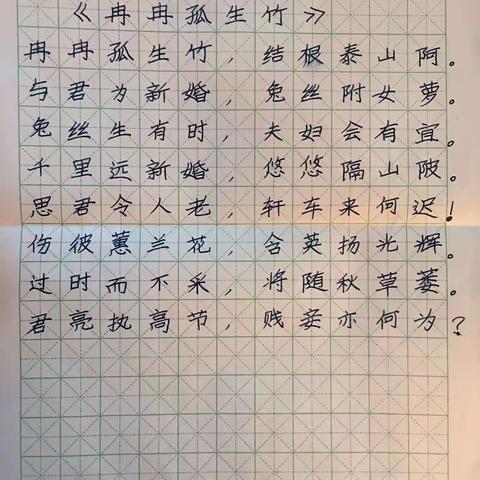 《冉冉孤生竹》
冉冉孤生竹，结根泰山阿。
与君为新婚，兔丝附女萝。
兔丝生有时，夫妇会有宜。
千里远新婚，悠悠隔山陂。
思君令人老，轩车来何迟！
伤彼蕙兰花，含英扬光辉。
过时而不采，将随秋草萎。
君亮执高节，贱妾亦何为？